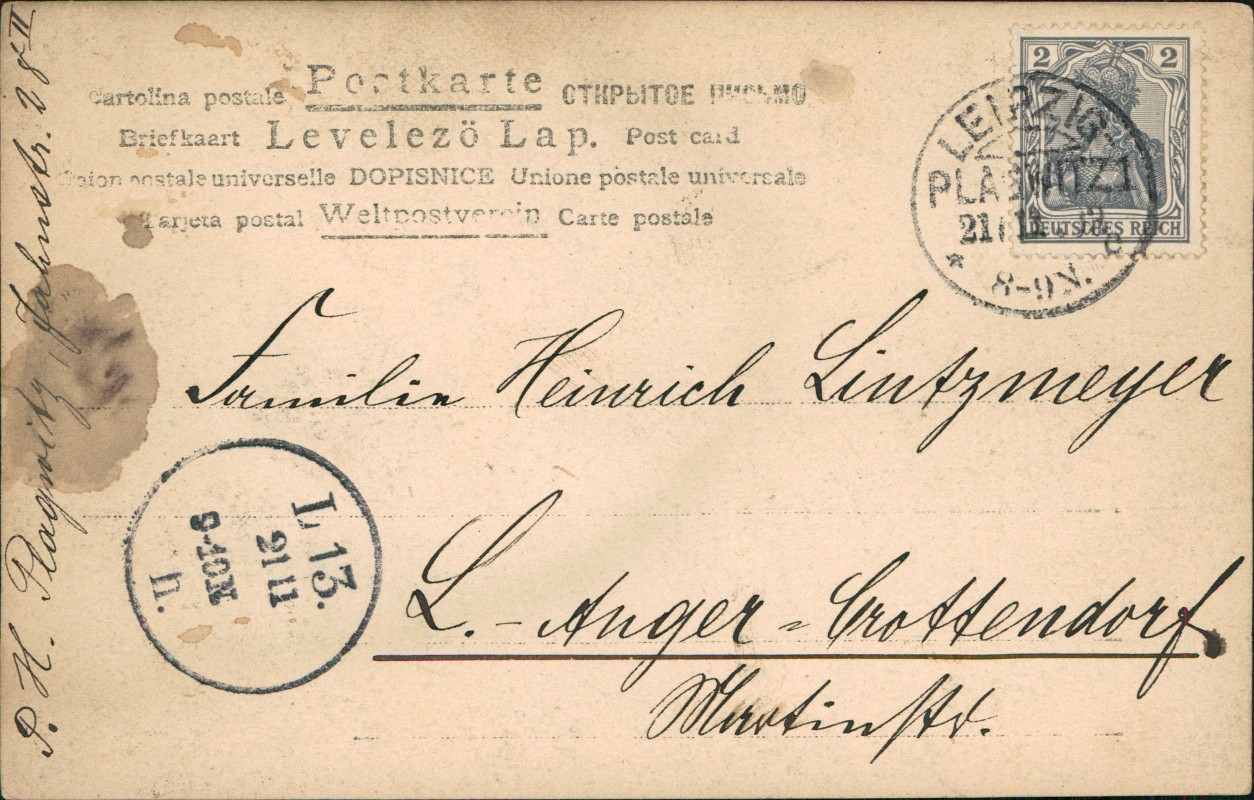 Cartolina postale Postkarte ОТКРЫТОЕ ПИСЬМО
Briefkaart Levelező Lap. Post card
Union postale universelle DOPISNICE Unione postale universale
Tarjeta postal Weltpostverein Carte postale
2 2
DEUTSCHES REICH
LEIPZIG-
PLAGWITZ 1
21 11
* 8-9N.
Familie Heinrich Lintzmeyer
L.-Anger-Crottendorf
Martinstr.
L 13.
21 11
9-10N
h.
P. H. Plagwitz, Jahnstr. 28 II